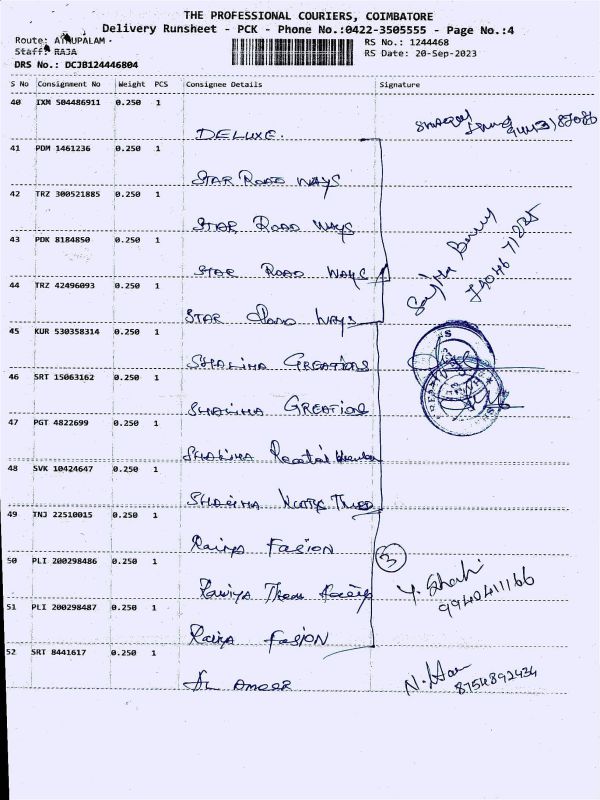 THE PROFESSIONAL COURIERS, COIMBATORE
Delivery Runsheet - PCK - Phone No.:0422-3505555 - Page No.:4
Route: ATHUPALAM
RS No.: 1244468
Staff: RAJA
RS Date: 20-Sep-2023
DRS No.: DCJB124446804
S No Consignment No Weight PCS Consignee Details Signature
40 IXM 504486911 0.250 1
DELUXE.
41 PDM 1461236 0.250 1
STAR ROAD WAYS
42 TRZ 300521885 0.250 1
STAR ROAD WAYS
43 PDK 8184850 0.250 1
STAR ROAD WAYS
44 TRZ 42496093 0.250 1
STAR ROAD WAYS
45 KUR 530358314 0.250 1
SHALIMA CREATIONS
46 SRT 15063162 0.250 1
SHALIMA
47 PGT 4822699 0.250 1
SHALIMA
48 SVK 10424647 0.250 1
SHALIMA
49 TNJ 22510015 0.250 1
FASION
3
50 PLI 200298486 0.250 1
9940411166
51 PLI 200298487 0.250 1
FASION
52 SRT 8441617 0.250 1
AL AMEER
8754892434